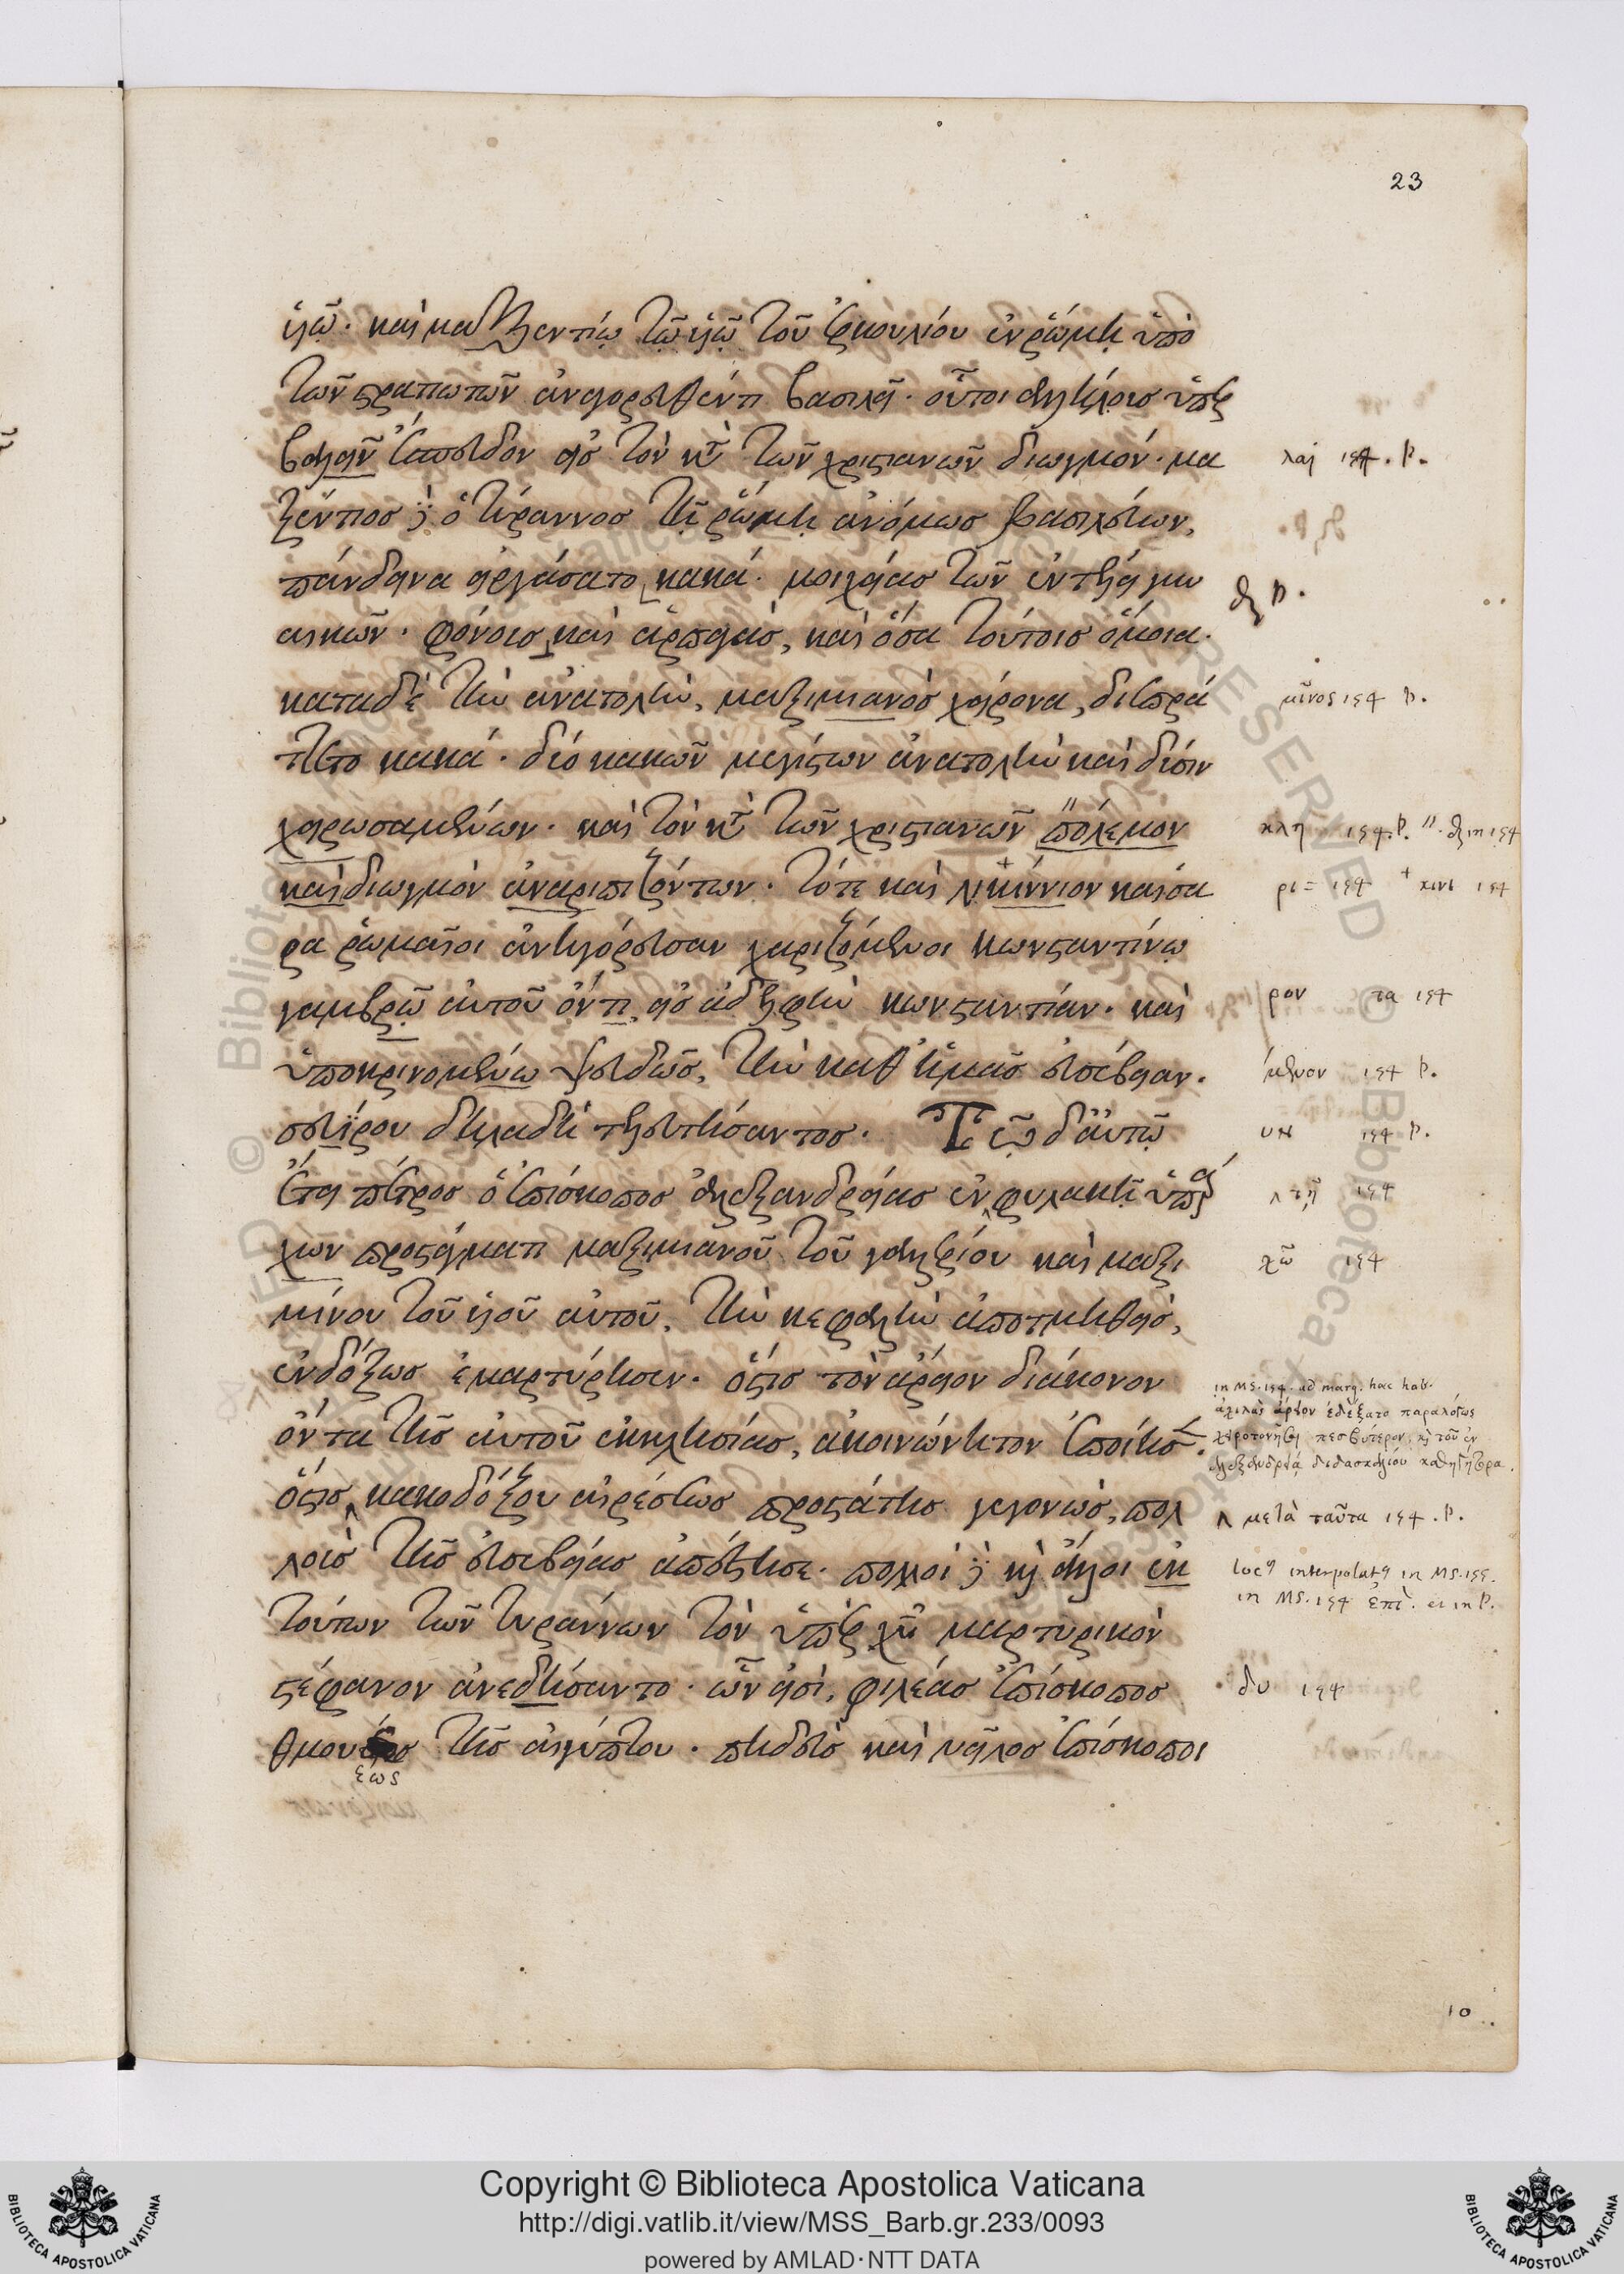 23
υἱῷ. καὶ μαξεντίῳ τῷ υἱῷ τοῦ ἑρκουλίου ἐν ῥώμῃ ὑπὸ
τῶν στρατιωτῶν ἀναγορευθέντι βασιλεῖ. οὗτοι ἀλλήλοις ὑπερ
βαλεῖν ἔσπευδον εἰς τὸν κατὰ τῶν χριστιανῶν διωγμόν. μα
ξέντιος δὲ ὁ τύραννος τῇ ῥώμῃ ἀνόμως βασιλεύων,
πάνδεινα εἰργάσατο κακά. μοιχείας τῶν ἐν τέλει γυν
αικῶν. φόνους καὶ ἁρπαγὰς, καὶ ὅσα τούτοις ὅμοια.
κατὰ δὲ τὴν ἀνατολὴν, μαξιμιανὸς χείρονα, διεπρά
ττετο κακά. δύο κακῶν μεγίστων ἀνατολὴν καὶ δύσιν
χειρωσαμένων. καὶ τὸν κατὰ τῶν χριστιανῶν πόλεμον
καὶ διωγμὸν ἀναριπιζόντων. τότε καὶ λικίννιον καίσα
ρα ῥωμαῖοι ἀνηγόρευσαν χαριζόμενοι κωνσταντίνῳ
γαμβρῷ αὐτοῦ ὄντι εἰς ἀδελφὴν κωνσταντίαν. καὶ
ὑποκρινομένῳ ψευδῶς, τὴν καθ ἡμᾶς εὐσέβειαν.
σευήρου δηλαδὴ τελευτήσαντος. Τῷ δ' αὐτῷ
ἔτει πέτρος ὁ ἐπίσκοπος ἀλεξανδρείας ἐν φυλακῇ ὑπάρ
χων προστάγματι μαξιμιανοῦ τοῦ γαλερίου καὶ μαξι
μίνου τοῦ υἱοῦ αὐτοῦ, τὴν κεφαλὴν ἀποτμηθεὶς,
ἐνδόξως ἐμαρτύρησεν. ὅστις τὸν ἄρειον διάκονον
ὄντα τῆς αὐτοῦ ἐκκλησίας, ἀκοινώνητον ἐποίησε.
ὅστις κακοδόξου αἱρέσεως προστάτης γεγονὼς, πολ
λοὺς τῆς εὐσεβείας ἀπέστησε. πολλοὶ δὲ καὶ ἄλλοι ἐκ
τούτων τῶν τυράννων τὸν ὑπὲρ χῦ μαρτυρικὸν
στέφανον ἀνεδήσαντο. ὧν εἰσὶ, φιλέας ἐπίσκοπος
θμου τῆς αἰγύπτου. πηλεὺς καὶ νεῖλος ἐπίσκοποι
εως
λαι 154. P.
P.
μῖνος 154 P.
κλη 154. P. ". 154
ρι = 154 + κινι 154
ρον τα 154
μενον 154 P.
υη 154 P.
Λ τῇ 154
χῶ 154
in MS. 154. ad marg. haec hab.
ἀχιλᾶς ἄρειον ἐδέξατο παραλόγως
Λ μετὰ ταῦτα 154. P.
locus interpolatus in MS. 155.
in MS. 154 ἐπὶ. et in P.
δυ 154
10
Copyright © Biblioteca Apostolica Vaticana
http://digi.vatlib.it/view/MSS_Barb.gr.233/0093
powered by AMLAD·NTT DATA
BIBLIOTECA APOSTOLICA VATICANA
BIBLIOTECA APOSTOLICA VATICANA